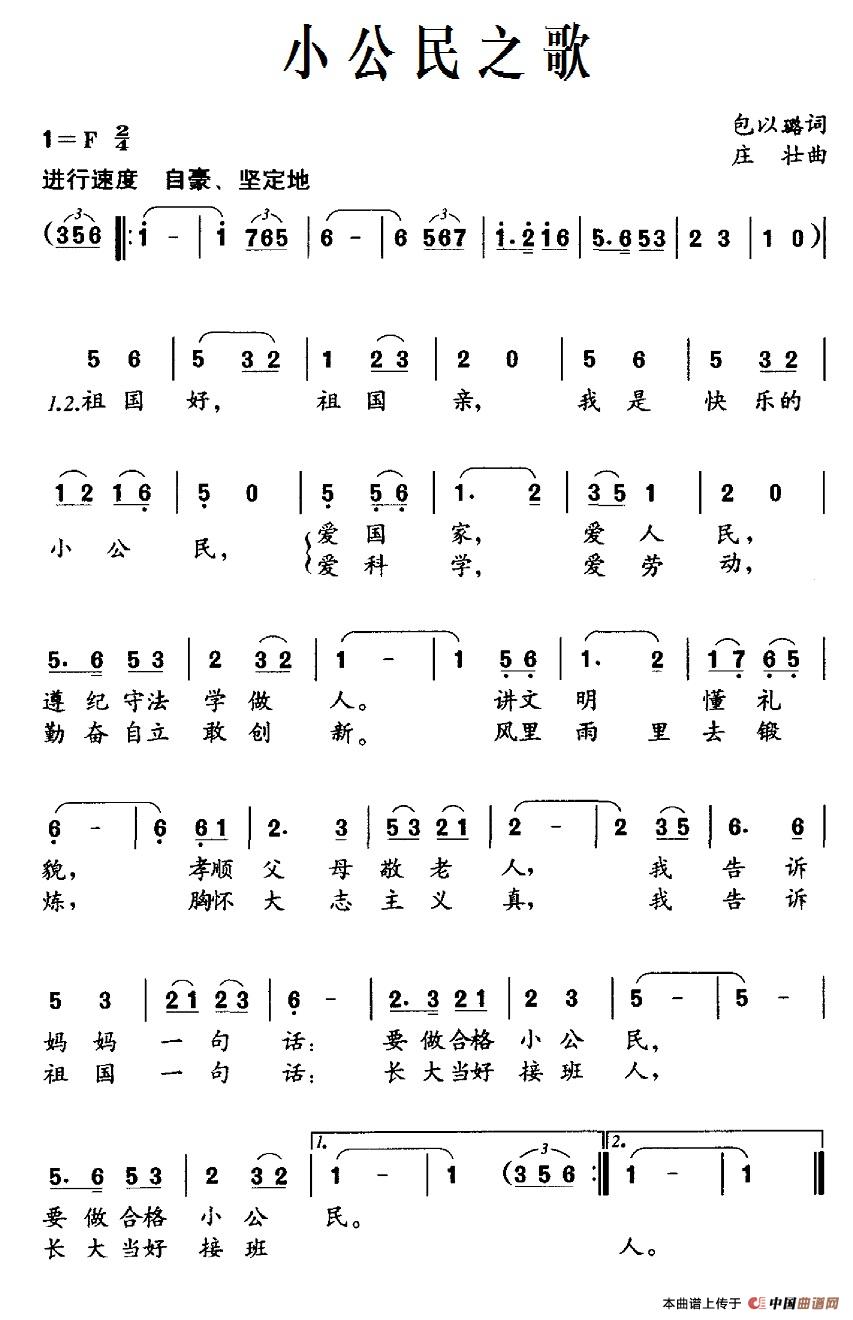 小公民之歌
包以璐词
1=F 2/4
庄 壮曲
进行速度 自豪、坚定地
(356 ‖: i - | i 765 | 6 - | 6 567 | i. 2 i 6 | 5. 6 5 3 | 2 3 | 1 0 )|
5 6 | 5 3 2 | 1 2 3 | 2 0 | 5 6 | 5 3 2 |
1.2.祖国 好, 祖国 亲, 我是 快乐的
1 2 1 6 | 5 0 | 5 5 6 | 1. 2 | 3 5 1 | 2 0 |
小公 民, 爱国 家, 爱人 民,
爱科 学, 爱劳 动,
5. 6 5 3 | 2 3 2 | 1 - | 1 5 6 | 1. 2 | 1 7 6 5 |
遵纪守法 学做 人。 讲文 明 懂礼
勤奋自立 敢创 新。 风里 雨里 去锻
6 - | 6 6 1 | 2. 3 | 5 3 2 1 | 2 - | 2 3 5 | 6. 6 |
貌, 孝顺 父母 敬老 人, 我 告诉
炼, 胸怀 大志 主义 真, 我 告诉
5 3 | 2 1 2 3 | 6 - | 2. 3 2 1 | 2 3 | 5 - | 5 - |
妈妈 一句 话: 要做合格 小公 民,
祖国 一句 话: 长大当好 接班 人,
1. 2.
5. 6 5 3 | 2 3 2 | 1 - | 1 (3 5 6 :‖ 1 - | 1 ‖
要做合格 小公 民。
长大当好 接班 人。
本曲谱上传于 中国曲谱网